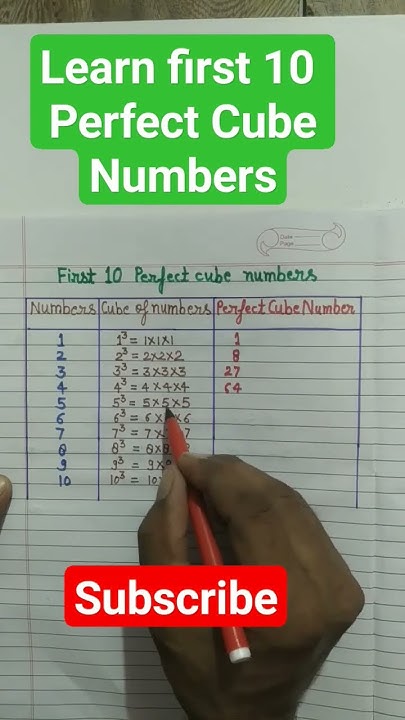 Learn first 10
Perfect Cube
Numbers
Date
Page
First 10 Perfect cube numbers
Numbers Cube of numbers Perfect Cube Number
1 1³ = 1×1×1 1
2 2³ = 2×2×2 8
3 3³ = 3×3×3 27
4 4³ = 4×4×4 64
5 5³ = 5×5×5
6 6³ = 6× ×6
7 7³ = 7× 7
8 8³ = 8×
9 9³ = 9×
10 10³ = 10
Subscribe